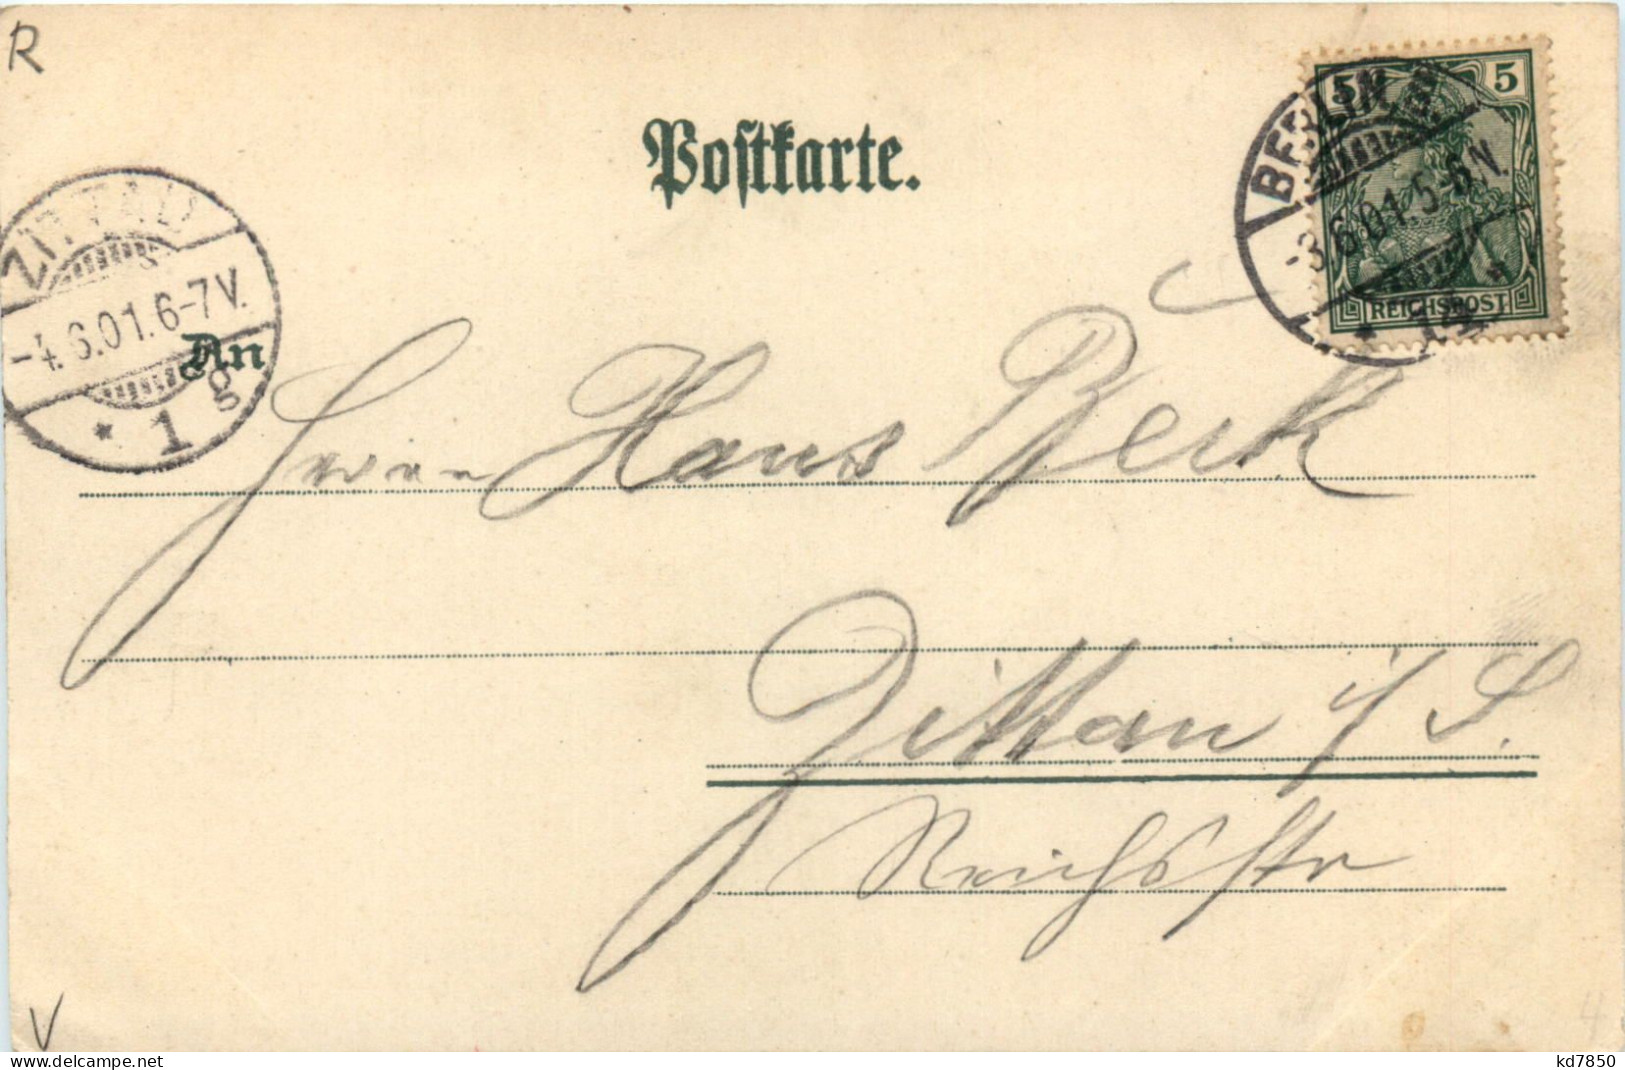 R
Postkarte.
5 5
BERLIN
-3.6.01.5-6.N.
REICHSPOST
ZITTAU
-4.6.01.6-7V.
* 1 g
An
Herrn Hans Beck
Zittau i/S.
Reichsstr
V
4
kd7850